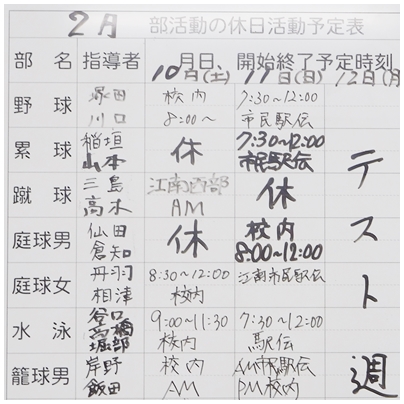 2月 部活動の休日活動予定表
部名 指導者 月日、開始終了予定時刻
10月(土) 11(日) 12(月
野球 塚田 校内 7:30~12:00
川口 8:00~ 市民駅伝
累球 稲垣 休 7:30~12:00
山本 市民駅伝
蹴球 三島 江南西部 休
高木 AM
庭球男 仙田 休 校内
倉知 8:00~12:00
庭球女 丹羽 8:30~12:00 江南市民駅伝
相津 校内
水泳 谷口 9:00~11:30 7:30~12:00
高橋 校内 駅伝
堀部
籠球男 岸野 校内 AM市民駅伝
飯田 AM PM校内
テスト週